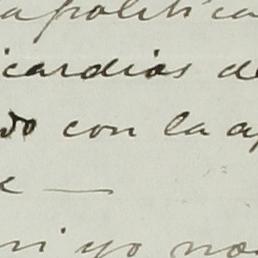 a politica
icardias de
do con la a
e —
ni yo no